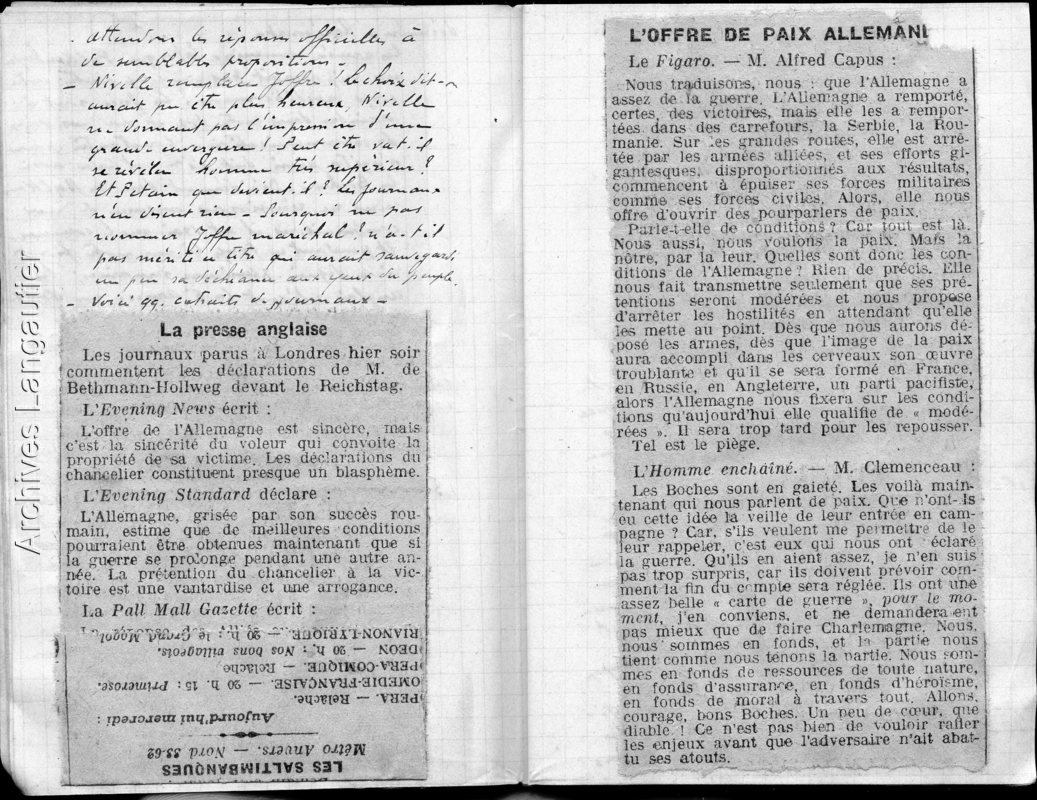 attendons les réponses officielles à
de semblables propositions -
- Nivelle remplace Joffre ! Le choix dit-on
aurait pu être plus heureux, Nivelle
ne donnant pas l'impression d'une
grande envergure ! Peut être va t-il
se révéler homme très supérieur ?
Et Petain que devient-il ? Les journaux
n'en disent rien - Pourquoi ne pas
nommer Joffre maréchal ! n'a-t-il
pas mérité ce titre qui aurait sauvegardé
un peu sa déchéance aux yeux du peuple.
- Voici qq. extraits de journaux -
La presse anglaise
Les journaux parus à Londres hier soir
commentent les déclarations de M. de
Bethmann-Hollweg devant le Reichstag.
L'Evening News écrit :
L'offre de l'Allemagne est sincère, mais
c'est la sincérité du voleur qui convoite la
propriété de sa victime. Les déclarations du
chancelier constituent presque un blasphème.
L'Evening Standard déclare :
L'Allemagne, grisée par son succès rou-
main, estime que de meilleures conditions
pourraient être obtenues maintenant que si
la guerre se prolonge pendant une autre an-
née. La prétention du chancelier à la vic-
toire est une vantardise et une arrogance.
La Pall Mall Gazette écrit :
LES SALTIMBANQUES
Métro Anvers. — Nord 33-62
Aujourd'hui mercredi :
OPERA. — Relâche.
COMEDIE-FRANÇAISE. — 20 h. 15 : Primerose.
OPERA-COMIQUE. — Relâche
ODEON — 20 h. : Nos bons villageois.
TRIANON-LYRIQUE. — 20 h. : le Grand Mogol.
Archives Langautier
L'OFFRE DE PAIX ALLEMAN
Le Figaro. — M. Alfred Capus :
Nous traduisons, nous : que l'Allemagne a
assez de la guerre. L'Allemagne a remporté,
certes, des victoires, mais elle les a rempor-
tées dans des carrefours, la Serbie, la Rou-
manie. Sur les grandes routes, elle est arrê-
tée par les armées alliées, et ses efforts gi-
gantesques, disproportionnés aux résultats,
commencent à épuiser ses forces militaires
comme ses forces civiles. Alors, elle nous
offre d'ouvrir des pourparlers de paix.
Parle-t-elle de conditions ? Car tout est là.
Nous aussi, nous voulons la paix. Mais la
nôtre, par la leur. Quelles sont donc les con-
ditions de l'Allemagne ? Rien de précis. Elle
nous fait transmettre seulement que ses pré-
tentions seront modérées et nous propose
d'arrêter les hostilités en attendant qu'elle
les mette au point. Dès que nous aurons dé-
posé les armes, dès que l'image de la paix
aura accompli dans les cerveaux son œuvre
troublante et qu'il se sera formé en France,
en Russie, en Angleterre, un parti pacifiste,
alors l'Allemagne nous fixera sur les condi-
tions qu'aujourd'hui elle qualifie de « modé-
rées ». Il sera trop tard pour les repousser.
Tel est le piège.
L'Homme enchaîné. — M. Clemenceau :
Les Boches sont en gaieté. Les voilà main-
tenant qui nous parlent de paix. Que n'ont-ils
eu cette idée la veille de leur entrée en cam-
pagne ? Car, s'ils veulent me permettre de le
leur rappeler, c'est eux qui nous ont déclaré
la guerre. Qu'ils en aient assez, je n'en suis
pas trop surpris, car ils doivent prévoir com-
ment la fin du compte sera réglée. Ils ont une
assez belle « carte de guerre », pour le mo-
ment, j'en conviens, et ne demanderaient
pas mieux que de faire Charlemagne. Nous,
nous sommes en fonds, et la partie nous
tient comme nous tenons la partie. Nous som-
mes en fonds de ressources de toute nature,
en fonds d'assurance, en fonds d'héroïsme,
en fonds de moral à travers tout. Allons,
courage, bons Boches. Un peu de cœur, que
diable ! Ce n'est pas bien de vouloir rafler
les enjeux avant que l'adversaire n'ait abat-
tu ses atouts.